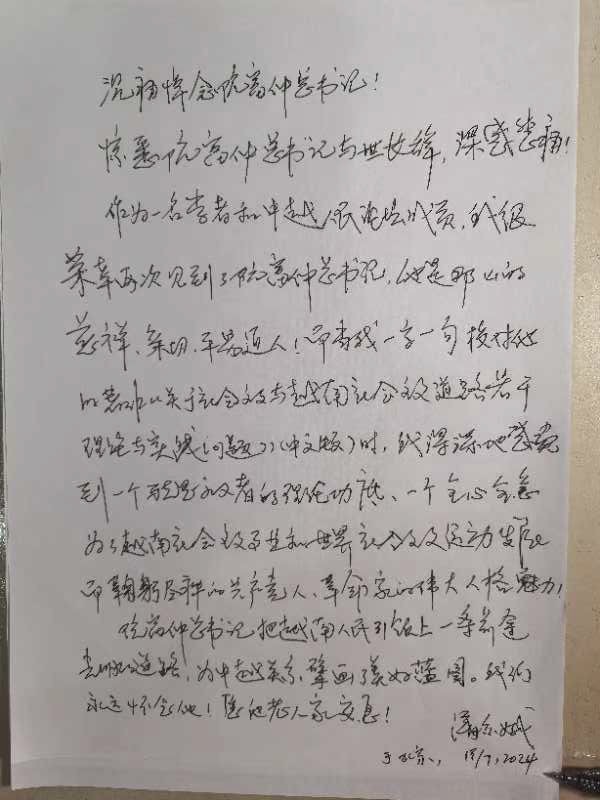 沉痛悼念阮富仲总书记!
惊悉阮富仲总书记与世长辞,深感悲痛!
作为一名学者和中越人民论坛成员,我很
荣幸再次见到了阮富仲总书记,他是那么的
慈祥、亲切、平易近人!而当我一字一句校对他
的著作《关于社会主义与越南社会主义道路若干
理论与实践问题》(中文版)时,我深深地感觉
到一个马克思主义者的理论功底、一个全心全意
为了越南社会主义事业和世界社会主义运动发展
而鞠躬尽瘁的共产党人、革命家的伟大人格魅力!
阮富仲总书记把越南人民引领上一条前途
光明的道路,为中越关系擘画了美好蓝图。我们
永远怀念他!愿他老人家安息!
潘金娥
于北京, 19/7, 2024